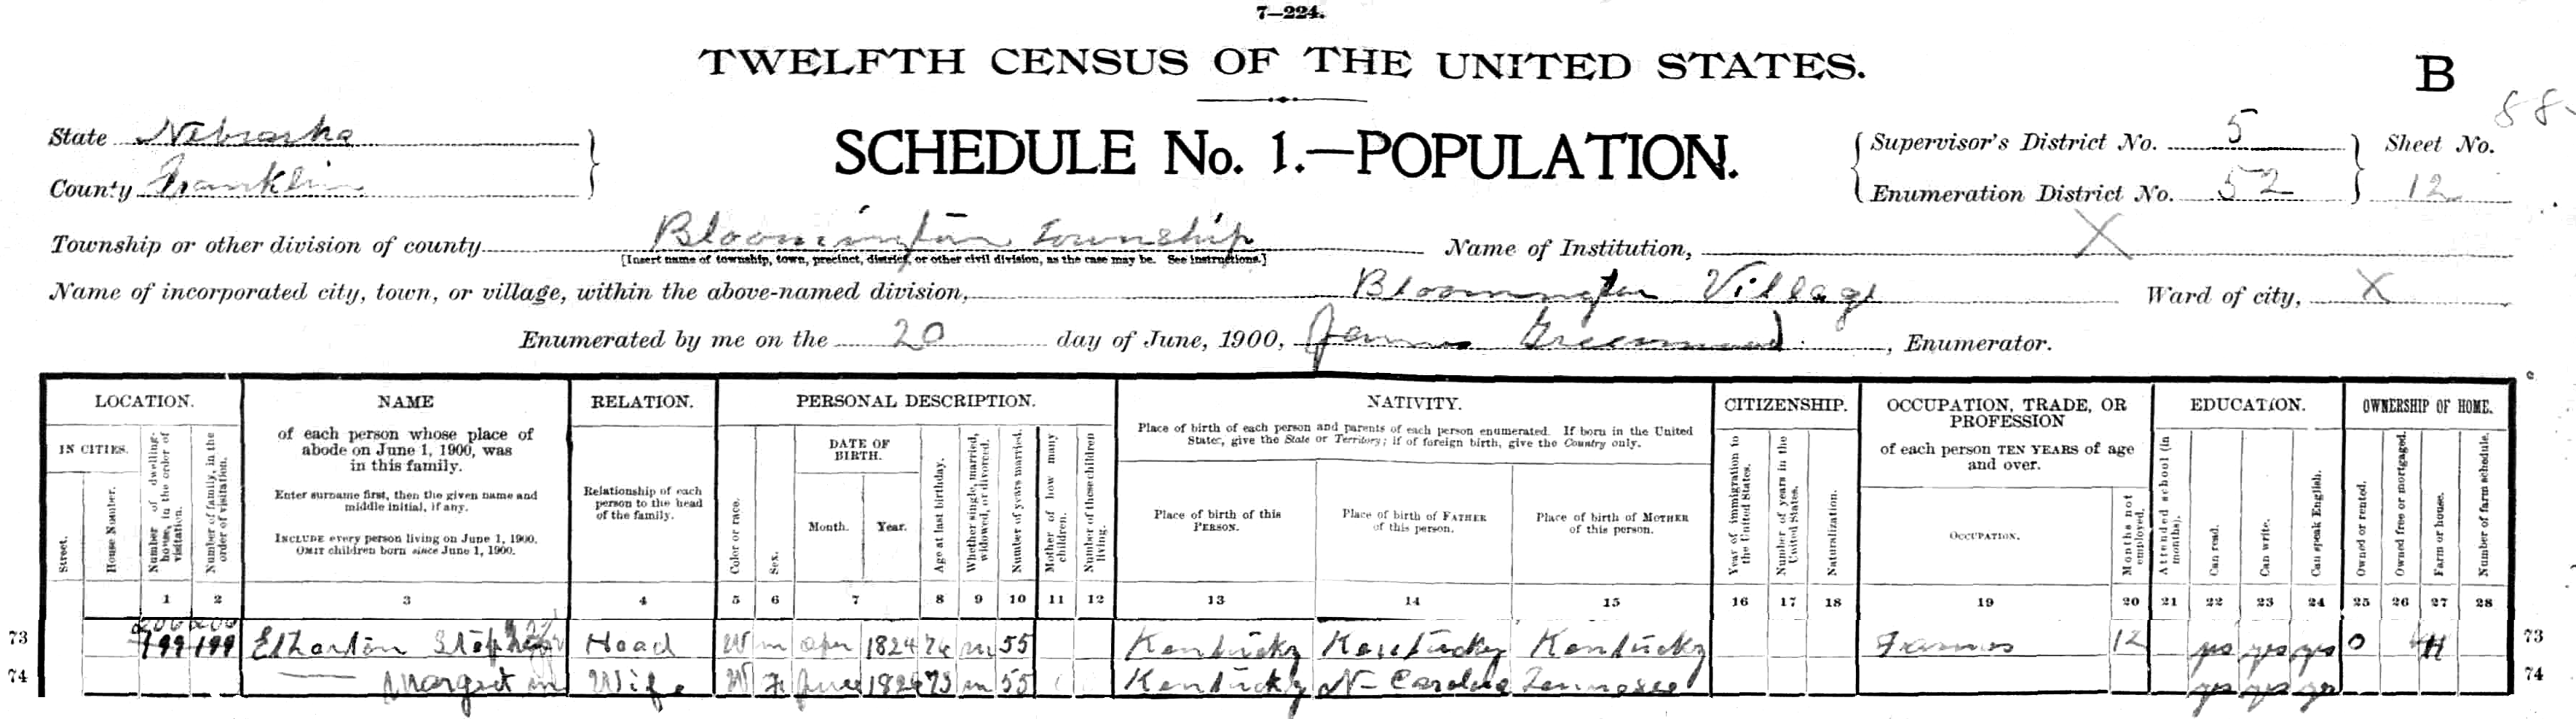 7—224.
TWELFTH CENSUS OF THE UNITED STATES.
B
State Nebraska
SCHEDULE No. 1.—POPULATION.
Supervisor's District No. 5
Sheet No.
88
County Franklin
Enumeration District No. 52
12
Township or other division of county Bloomington Township
Name of Institution, X
[Insert name of township, town, precinct, district, or other civil division, as the case may be. See instructions.]
Name of incorporated city, town, or village, within the above-named division, Bloomington Village
Ward of city, X
Enumerated by me on the 20 day of June, 1900, James Greenwood, Enumerator.
LOCATION.
IN CITIES.
Street.
House Number.
Number of dwelling-house, in the order of visitation.
Number of family, in the order of visitation.
NAME
of each person whose place of abode on June 1, 1900, was in this family.
Enter surname first, then the given name and middle initial, if any.
INCLUDE every person living on June 1, 1900.
OMIT children born since June 1, 1900.
RELATION.
Relationship of each person to the head of the family.
PERSONAL DESCRIPTION.
Color or race.
Sex.
DATE OF BIRTH.
Month.
Year.
Age at last birthday.
Whether single, married, widowed, or divorced.
Number of years married.
Mother of how many children.
Number of these children living.
NATIVITY.
Place of birth of each person and parents of each person enumerated. If born in the United States, give the State or Territory; if of foreign birth, give the Country only.
Place of birth of this PERSON.
Place of birth of FATHER of this person.
Place of birth of MOTHER of this person.
CITIZENSHIP.
Year of immigration to the United States.
Number of years in the United States.
Naturalization.
OCCUPATION, TRADE, OR PROFESSION
of each person TEN YEARS of age and over.
OCCUPATION.
Months not employed.
EDUCATION.
Attended school (in months).
Can read.
Can write.
Can speak English.
OWNERSHIP OF HOME.
Owned or rented.
Owned free or mortgaged.
Farm or house.
Number of farm schedule.
1 2 3 4 5 6 7 8 9 10 11 12 13 14 15 16 17 18 19 20 21 22 23 24 25 26 27 28
200 200
73 199 199 Etharton Stephen Head W m Apr 1824 76 m 55 Kentucky Kentucky Kentucky Farmer 12 yes yes yes O H 73
74 Margret m Wife W F June 1826 73 m 55 Kentucky N- Carolina Tennessee yes yes yes 74